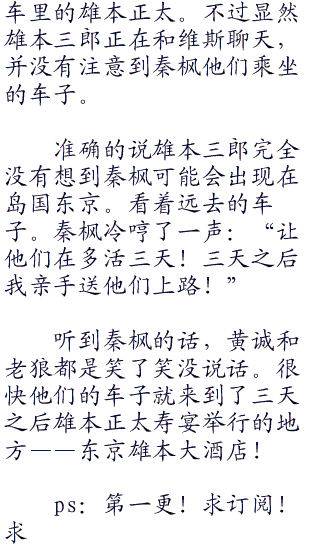 车里的雄本正太。不过显然
雄本三郎正在和维斯聊天，
并没有注意到秦枫他们乘坐
的车子。
准确的说雄本三郎完全
没有想到秦枫可能会出现在
岛国东京。看着远去的车
子。秦枫冷哼了一声：“让
他们在多活三天！三天之后
我亲手送他们上路！”
听到秦枫的话，黄诚和
老狼都是笑了笑没说话。很
快他们的车子就来到了三天
之后雄本正太寿宴举行的地
方——东京雄本大酒店！
ps：第一更！求订阅！
求